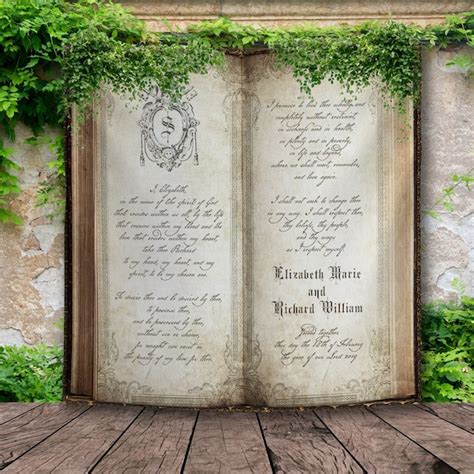 I, Elizabeth,
in the name of the spirit of God
that resides within us all, by the life
that courses within my blood and the
love that resides within my heart,
take thee Richard
to my hand, my heart, and my
spirit, to be my chosen one.
To desire thee and be desired by thee,
to possess thee,
and be possessed by thee,
without sin or shame, for
naught can exist in
the purity of my love for thee.
I promise to love thee wholly and
completely without restraint,
in sickness and in health,
in plenty and in poverty,
in life and beyond,
where we shall meet, remember,
and love again.
I shall not seek to change thee
in any way. I shall respect thee,
thy beliefs, thy people,
and thy ways
as I respect myself.
Elizabeth Marie
and
Richard William
together
day the of February
the year of our Lord 2019